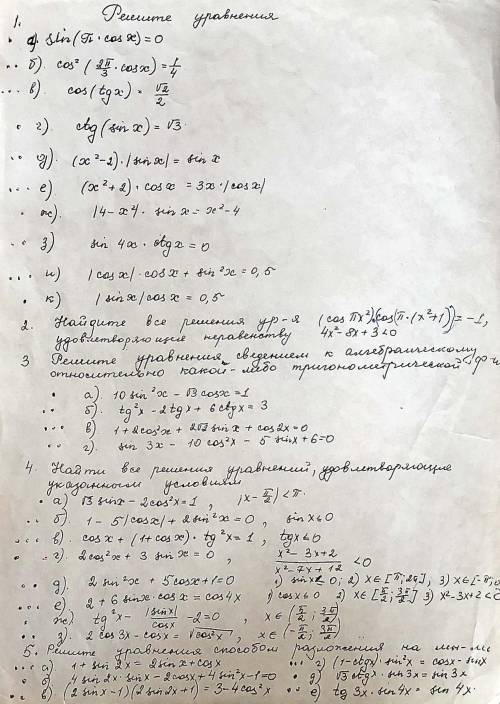 1. Решите уравнения
а). sin(π·cosx)=0
б). cos²(2π/3·cosx)=1/4
в). cos(tgx)=√2/2
г). ctg(sinx)=√3
д). (x²-2)·|sinx|=sinx
е). (x²+2)·cosx=3x·|cosx|
ж). |4-x²|·sinx=x²-4
з). sin4x·ctgx=0
и). |cosx|·cosx+sin²x=0,5
к). |sinx|cosx=0,5
2. Найдите все решения ур-я (cos πx²)(cos(π·(x²+1))=-1,
удовлетворяющие неравенству 4x²-8x+3<0
3 Решите уравнения сведением к алгебраическому
относительно какой-либо тригонометрической
а). 10sin²x-√3cosx=1
б). tg²x-2tgx+6ctgx=3
в). 1+2cos²x+2√2sinx+cos2x=0
г). sin3x-10cos²x-5sinx+6=0
4. Найти все решения уравнений, удовлетворяющие
указанным условиям
а) √3sinx-2cos²x=1, |x-π/2|<π
б). 1-5|cosx|+2sin²x=0, sinx≤0
в). cosx+(1+cosx)·tg²x=1, tgx≤0
г). 2cos²x+3sinx=0, x²-3x+2/x²-7x+12<0
д). 2sin²x+5cosx+1=0 1) sinx≤0; 2) x∈[π;2π], 3) x∈[-π;
е). 2+6sinx·cosx=cos4x 1) cosx≤0 2) x∈[π/2;3π/2] 3) x²-3x+2<0
ж). tg²x-|sinx|/cosx-2=0, x∈(π/2;3π/2)
з). 2cos3x-cosx=√cos²x, x∈(-π/2;3π/2)
5. Решите уравнения способом разложения на мн-ли
а) 1+sin2x=2sinx+cosx г) (1-ctgx)·sin²x=cosx-sinx
б) 4sin2x·sinx-2cosx+4sin²x-1=0 д) √3ctgx·sin3x=sin3x
в) (2sinx-1)(2sin2x+1)=3-4cos²x е) tg3x·sin4x=sin4x